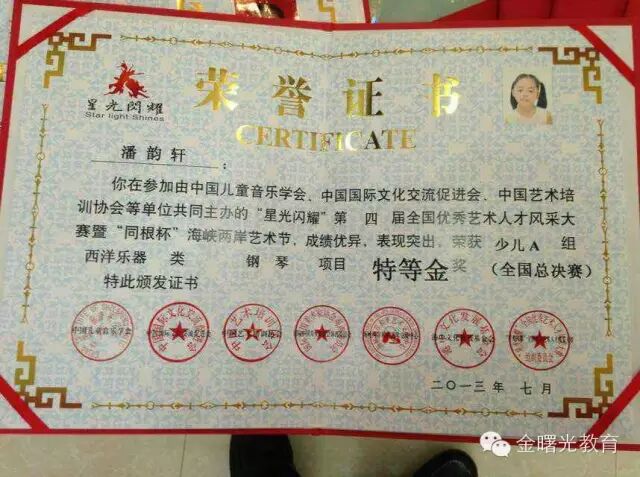 星光閃耀
Star light Shines
荣誉证书
CERTIFICATE
潘韵轩 :
你在参加由中国儿童音乐学会、中国国际文化交流促进会、中国艺术培
训协会等单位共同主办的“星光闪耀”第 四 届全国优秀艺术人才风采大
赛暨“同根杯”海峡两岸艺术节，成绩优异，表现突出，荣获 少儿A 组
西洋乐器 类 钢琴 项目 特等金 奖 (全国总决赛)
特此颁发证书
中国儿童音乐学会
二〇一三年 七月
金曙光教育